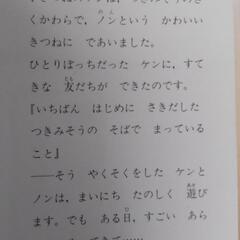 くかわらで，ノンという　かわいい
きつねに　であいました。
ひとりぼっちだった　ケンに，すて
きな　友だちが　できたのです。
『いちばん　はじめに　さきだした
つきみそうの　そばで　まっている
こと』
――そう　やくそくをした　ケンと
ノンは，まいにち　たのしく　遊び
ます。でも　ある日，すごい　あら